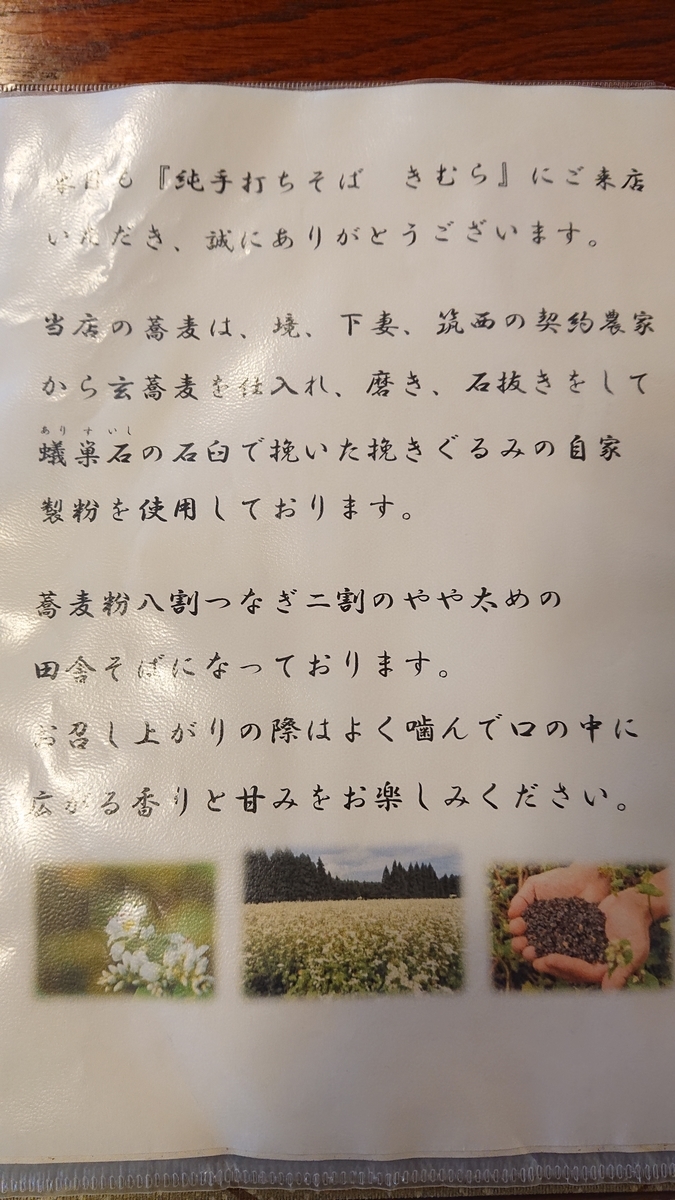 本日も『純手打ちそば　きむら』にご来店
いただき、誠にありがとうございます。
当店の蕎麦は、境、下妻、筑西の契約農家
から玄蕎麦を仕入れ、磨き、石抜きをして
ありすいし
蟻巣石の石臼で挽いた挽きぐるみの自家
製粉を使用しております。
蕎麦粉八割つなぎ二割のやや太めの
田舎そばになっております。
お召し上がりの際はよく噛んで口の中に
広がる香りと甘みをお楽しみください。